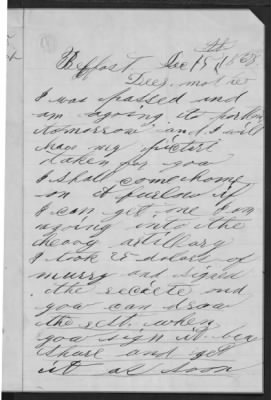 Belfast Dec 15th 1863
Deer mother
I was passed and
am agoing to portland
tomorrow and I will
have my picturt
taken for you
I shall come home
on a furlow if
I can get one I am
agoing into the
heavy artillary
I took 25 dolars of
murry and signed
the reciete and
you can draw
the rest when
you sign it. bea
shure and get
it as soon